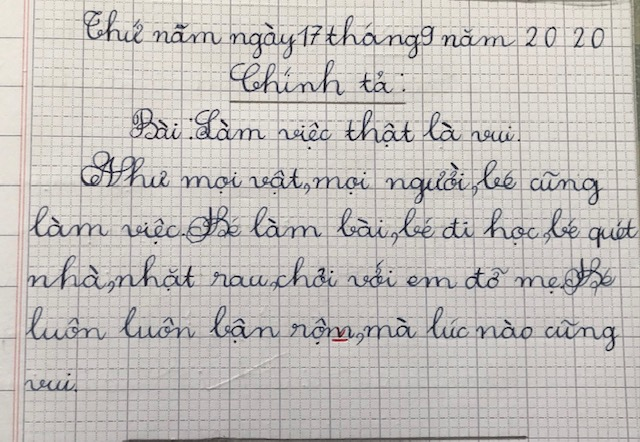 Thứ năm ngày 17 tháng 9 năm 2020
Chính tả:
Bài: Làm việc thật là vui.
Như mọi vật, mọi người, bé cũng
làm việc. Bé làm bài, bé đi học, bé quét
nhà, nhặt rau, chơi với em đỡ mẹ. Bé
luôn luôn bận rộm, mà lúc nào cũng
vui.